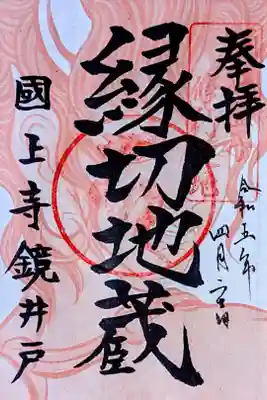 奉拝
令和五年
四月二十日
縁切地蔵
國上寺鏡井戸